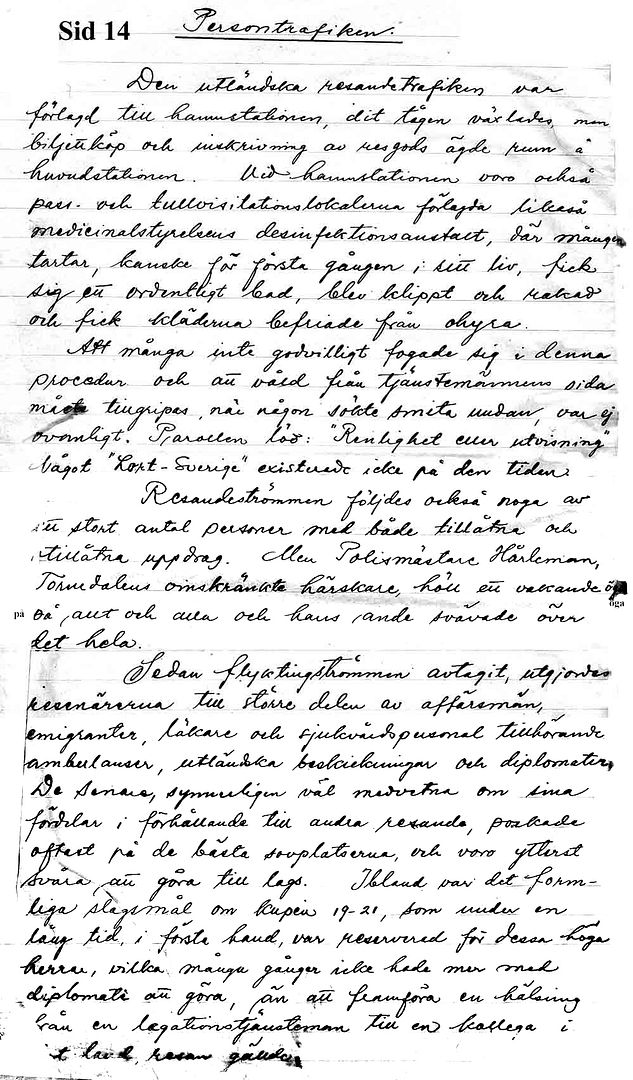 Sid 14 Persontrafiken.
Den utländska resandetrafiken var
förlagd till hamnstationen, dit tågen växlades, men
biljettköp och inskrivning av resgods ägde rum å
huvudstationen. Vid hamnstationen voro också
pass- och tullvisitationslokalerna förlagda likaså
medicinalstyrelsens desinfektionsanstalt, där mången
tartar, kanske för första gången i sitt liv, fick
sig ett ordentligt bad, blev klippt och rakad
och fick kläderna befriade från ohyra.
Att många inte godvilligt fogade sig i denna
procedur och att våld från tjänstemännens sida
måste tillgripas, när någon sökte smita undan, var ej
ovanligt. Parollen löd: "Renlighet eller utvisning"
Något "Lort-Sverige" existerade icke på den tiden.
Resandeströmmen följdes också noga av
ett stort antal personer med både tillåtna och
otillåtna uppdrag. Men Polismästare Hårleman,
Tornedalens omskränkte härskare, höll ett vakande öga
på på allt och alla och hans ande svävade över
det hela.
Sedan flyktingströmmen avtagit, utgjordes
resenärerna till större delen av affärsmän,
emigranter, läkare och sjukvårdspersonal tillhörande
ambulanser, utländska beskickningar och diplomater.
De senare, synnerligen väl medvetna om sina
fördelar i förhållande till andra resande, pockade
oftast på de bästa sovplatserna, och voro ytterst
svåra att göra till lags. Ibland var det form-
liga slagsmål om kupén 19-21, som under en
lång tid, i första hand, var reserverad för dessa höga
herrar, vilka många gånger icke hade mer med
diplomati att göra, än att framföra en hälsning
från en legationstjänsteman till en kollega i
t land, resan gällde.
öga